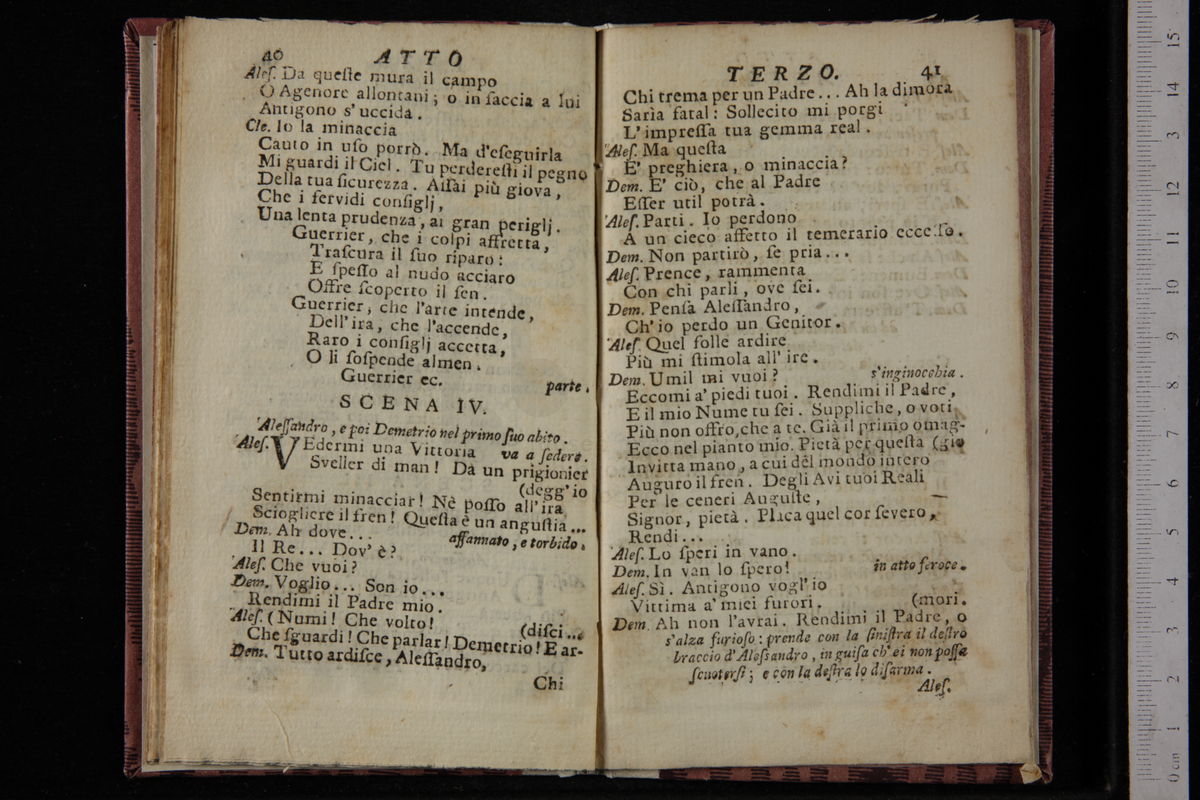 40 ATTO
Aleſ. Da queſte mura il campo
O Agenore allontani; o in faccia a lui
Antigono s'uccida.
Cle. Io la minaccia
Cauto in uſo porrò. Ma d'eſeguirla
Mi guardi il Ciel. Tu perdereſti il pegno
Della tua ſicurezza. Aſſai più giova,
Che i fervidi conſiglj,
Una lenta prudenza, ai gran periglj.
Guerrier, che i colpi affretta,
Traſcura il ſuo riparo:
E ſpeſſo al nudo acciaro
Offre ſcoperto il ſen.
Guerrier, che l'arte intende,
Dell'ira, che l'accende,
Raro i conſiglj accetta,
O li ſoſpende almen.
Guerrier ec. parte.
SCENA IV.
Aleſſandro, e poi Demetrio nel primo ſuo abito.
Aleſ. VEdermi una Vittoria va a ſedere.
Sveller di man! Da un prigionier
(degg'io
Sentirmi minacciar! Nè poſſo all'ira
Sciogliere il fren! Queſta è un anguſtia...
Dem. Ah dove... affannato, e torbido.
Il Re... Dov'è?
Aleſ. Che vuoi?
Dem. Voglio... Son io...
Rendimi il Padre mio.
Aleſ. (Numi! Che volto!
(diſci...
Che ſguardi! Che parlar! Demetrio! E ar-
Dem. Tutto ardiſce, Aleſſandro,
Chi
TERZO. 41
Chi trema per un Padre... Ah la dimora
Sarìa fatal: Sollecito mi porgi
L'impreſſa tua gemma real.
Aleſ. Ma queſta
E' preghiera, o minaccia?
Dem. E' ciò, che al Padre
Eſſer util potrà.
Aleſ. Parti. Io perdono
A un cieco affetto il temerario ecceſſo.
Dem. Non partirò, ſe pria...
Aleſ. Prence, rammenta
Con chi parli, ove ſei.
Dem. Penſa Aleſſandro,
Ch'io perdo un Genitor.
Aleſ. Quel folle ardire
Più mi ſtimola all'ire.
Dem. Umil mi vuoi? s'inginocchia.
Eccomi a' piedi tuoi. Rendimi il Padre,
E il mio Nume tu ſei. Suppliche, o voti
Più non offro, che a te. Già il primo omag-
Ecco nel pianto mio. Pietà per queſta (gio
Invitta mano, a cui del mondo intero
Auguro il fren. Degli Avi tuoi Reali
Per le ceneri Auguſte,
Signor, pietà. Placa quel cor ſevero,
Rendi...
Aleſ. Lo ſperi in vano.
Dem. In van lo ſpero! in atto feroce.
Aleſ. Sì. Antigono vogl'io
Vittima a' miei furori. (mori.
Dem. Ah non l'avrai. Rendimi il Padre, o
s'alza furioſo: prende con la ſiniſtra il deſtro
braccio d'Aleſsandro, in guiſa ch'ei non poſſa
ſcuoterſi; e con la deſtra lo diſarma.
Aleſ.